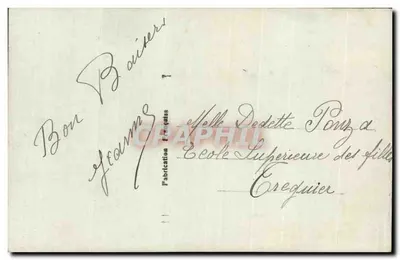 Bon Baisers
Jeanne
Fabrication Française
CPAPHIL
Melle Dedette Ponza
Ecole Superieure des filles
Treguier